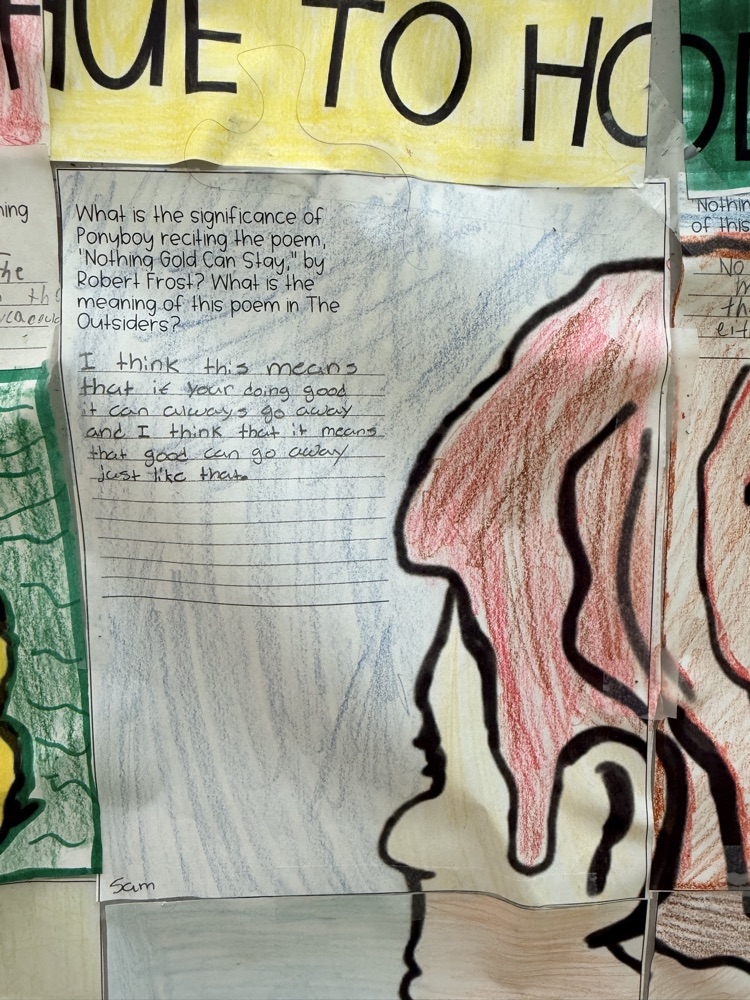 HUE TO HO
What is the significance of
Ponyboy reciting the poem,
'Nothing Gold Can Stay," by
Robert Frost? What is the
meaning of this poem in The
Outsiders?
I think this means
that if your doing good
it can always go away
and I think that it means
that good can go away
just like that.
Sam
ning
The
Nothin
of this
No
th
eit